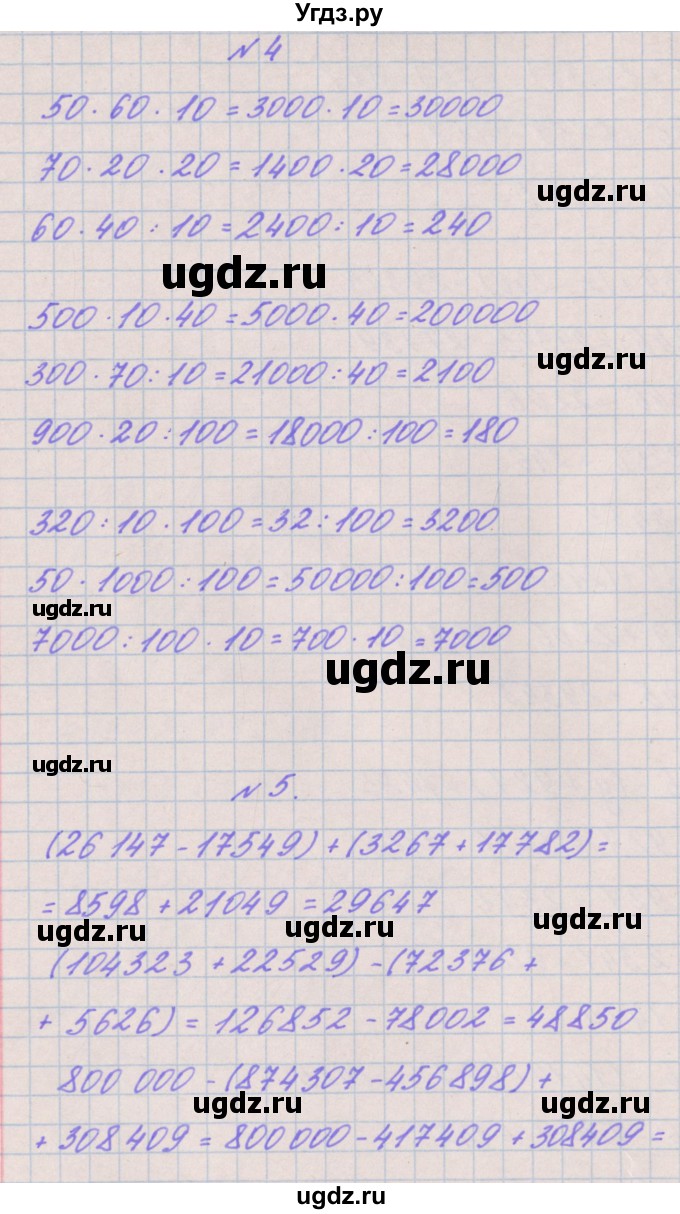 Угдз.ру
№ 4
50 · 60 · 10 = 3000 · 10 = 30000
70 · 20 · 20 = 1400 · 20 = 28000
ugdz.ru
60 · 40 : 10 = 2400 : 10 = 240
ugdz.ru
500 · 10 · 40 = 5000 · 40 = 200000
ugdz.ru
300 · 70 : 10 = 21000 : 40 = 2100
900 · 20 : 100 = 18000 : 100 = 180
320 : 10 · 100 = 32 : 100 = 3200
50 · 1000 : 100 = 50000 : 100 = 500
ugdz.ru
7000 : 100 · 10 = 700 · 10 = 7000
ugdz.ru
ugdz.ru
№ 5.
(26 147 - 17549) + (3267 + 17782) =
= 8598 + 21049 = 29647
ugdz.ru ugdz.ru ugdz.ru
(104323 + 22529) - (72376 +
+ 5626) = 126852 - 78002 = 48850
800 000 - (874307 - 456898) +
ugdz.ru ugdz.ru
+ 308409 = 800000 - 417409 + 308409 =
ugdz.ru